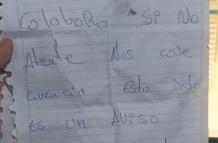 Colaboro Si No
Atente Nos cose
cuencia Esto solo
Es un Aviso